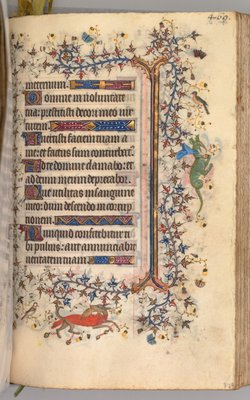 ineternum.
Domine in voluntate
tua: prestitisti decori meo vir
tutem.
Avertisti faciem tuam a
me: et factus sum conturbat
Ad te domine clamabo: et
ad deum meum deprecabor.
Que utilitas in sanguine
meo: dum descendo in corrup
tionem.
Nunquid confitebitur ti
bi pulvis: aut annunciabit
veritatem tuam.